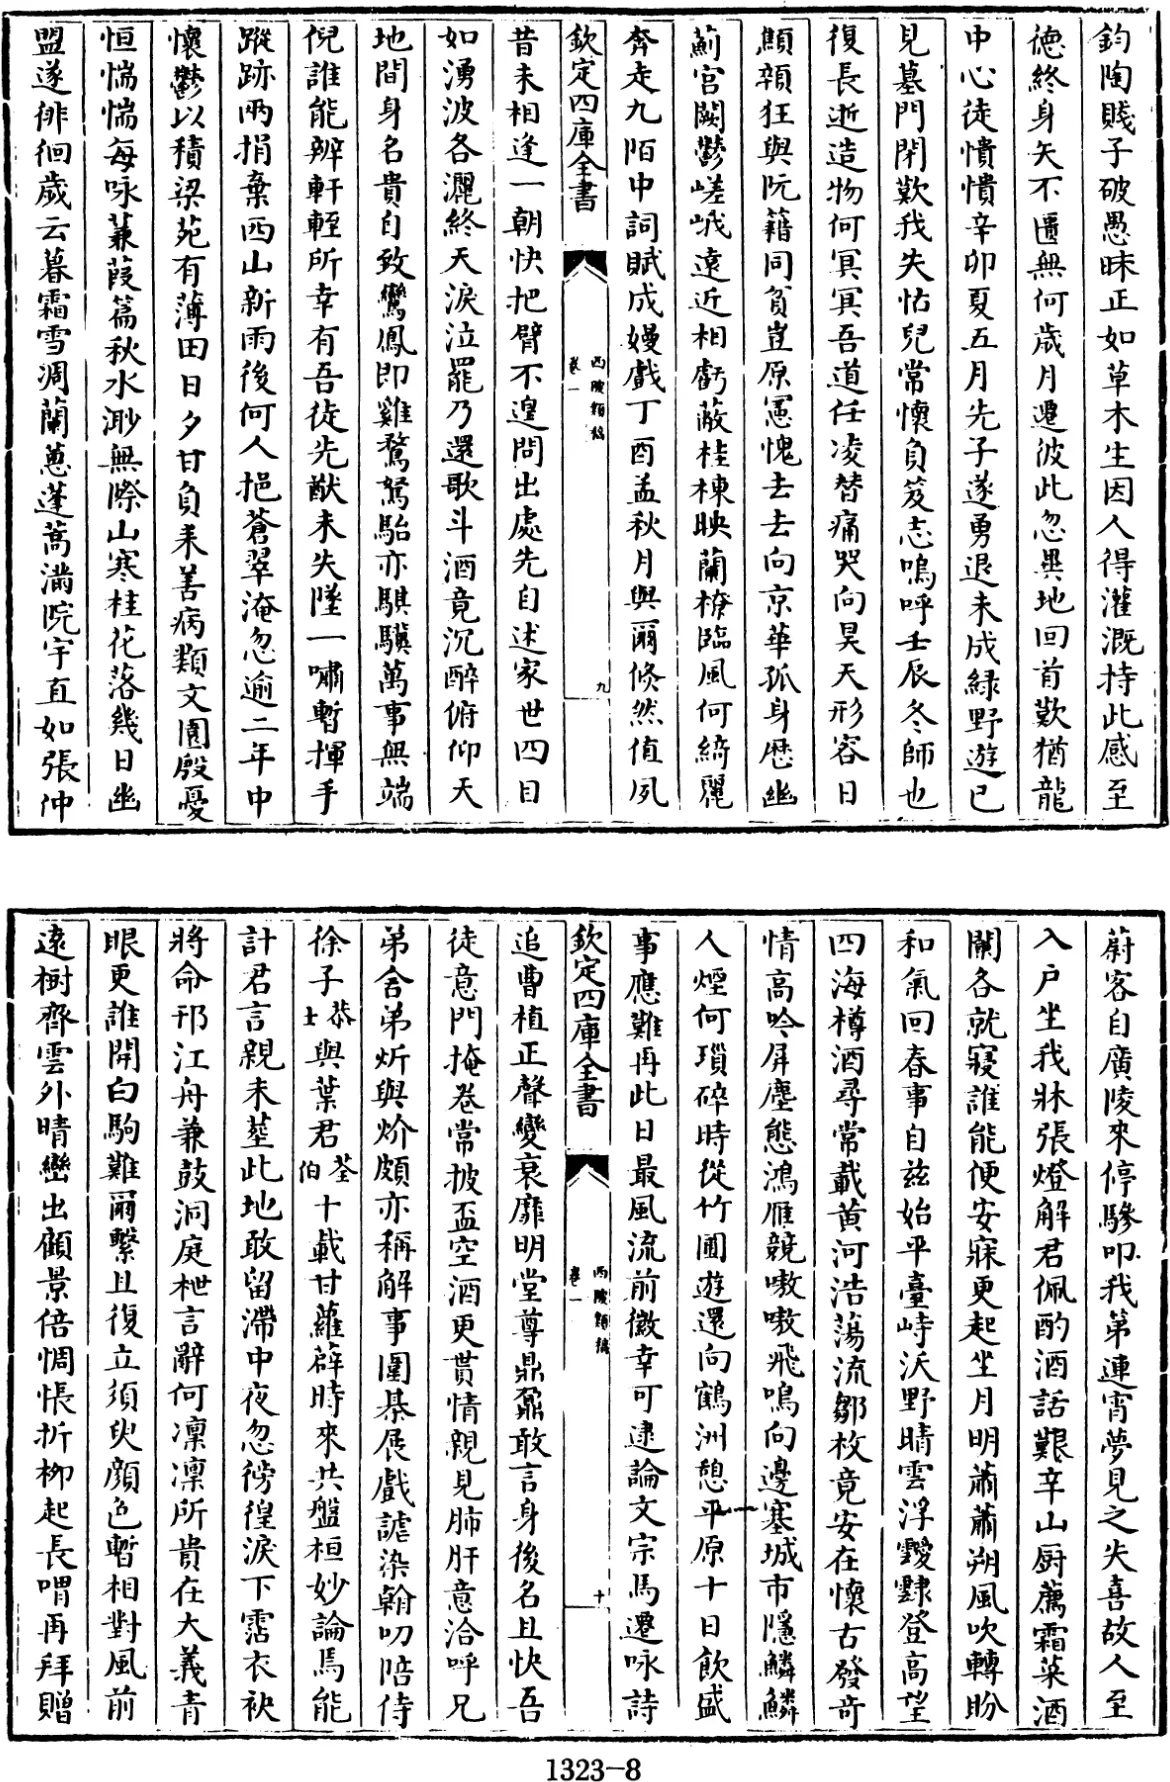 鈞陶賤子破愚昧正如草木生因人得灌溉持此感至
德終身矢不匱無何歲月遷彼此忽異地回首歎猶龍
中心徒憒憒辛卯夏五月先子遂勇退未成緑野遊已
見墓門閉歎我失怙兒常懷負笈志嗚呼壬辰冬師也
復長逝造物何冥冥吾道任凌替痛哭向昊天形容日
顦顇狂與阮籍同貧豈原憲愧去去向京華孤身歴幽
薊宫闕鬱嵯峨遠近相虧蔽桂棟映蘭橑臨風何綺麗
奔走九陌中詞賦成嫚戲丁酉孟秋月與爾倐然值夙
欽定四庫全書
西陂類稿
卷一
九
昔未相逢一朝快把臂不遑問出處先自述家世四目
如湧波各灑終天淚泣罷乃還歌斗酒竟沉醉俯仰天
地間身名貴自致鸞鳳即雞鶩駑駘亦騏驥萬事無端
倪誰能辨軒輊所幸有吾徒先猷未失墜一嘯暫揮手
蹤跡兩捐棄西山新雨後何人挹蒼翠淹忽逾二年中
懷鬱以積梁苑有薄田日夕甘負耒善病類文園殷憂
恒惴惴每咏蒹葭篇秋水渺無際山寒桂花落幾日幽
盟遂徘徊歲云暮霜雪凋蘭蕙蓬蒿满院宇直如張仲
蔚客自廣陵來停驂叩我第連宵夢見之失喜故人至
入户坐我牀張燈解君佩酌酒話艱辛山厨薦霜菜酒
闌各就寝誰能便安寐更起坐月明蕭蕭朔風吹轉盼
和氣回春事自兹始平臺峙沃野晴雲浮靉靆登高望
四海樽酒尋常載黄河浩蕩流鄒枚竟安在懷古發奇
情高吟屏塵態鴻雁競嗷嗷飛鳴向邊塞城市隱鱗鱗
人煙何瑣碎時從竹圃遊還向鶴洲憩平原十日飲盛
事應難再此日最風流前徽幸可逮論文宗馬遷咏詩
欽定四庫全書
西陂類稿
卷一
十
追曹植正聲變衰靡明堂尊鼎鼐敢言身後名且快吾
徒意門掩卷常披盃空酒更貰情親見肺肝意洽呼兄
弟舍弟炘與炌頗亦稱解事圍棊展戲謔染翰叨陪侍
徐子恭士與葉君荃伯十載甘蘿薜時來共盤桓妙論馬能
計君言親未塟此地敢留滯中夜忽徬徨淚下霑衣袂
將命邗江舟兼鼓洞庭枻言辭何凜凜所貴在大義青
眼更誰開白駒難爾繫且復立須臾顔色暫相對風前
遠樹齊雲外晴巒出顧景倍惆悵折柳起長喟再拜贈
1323-8